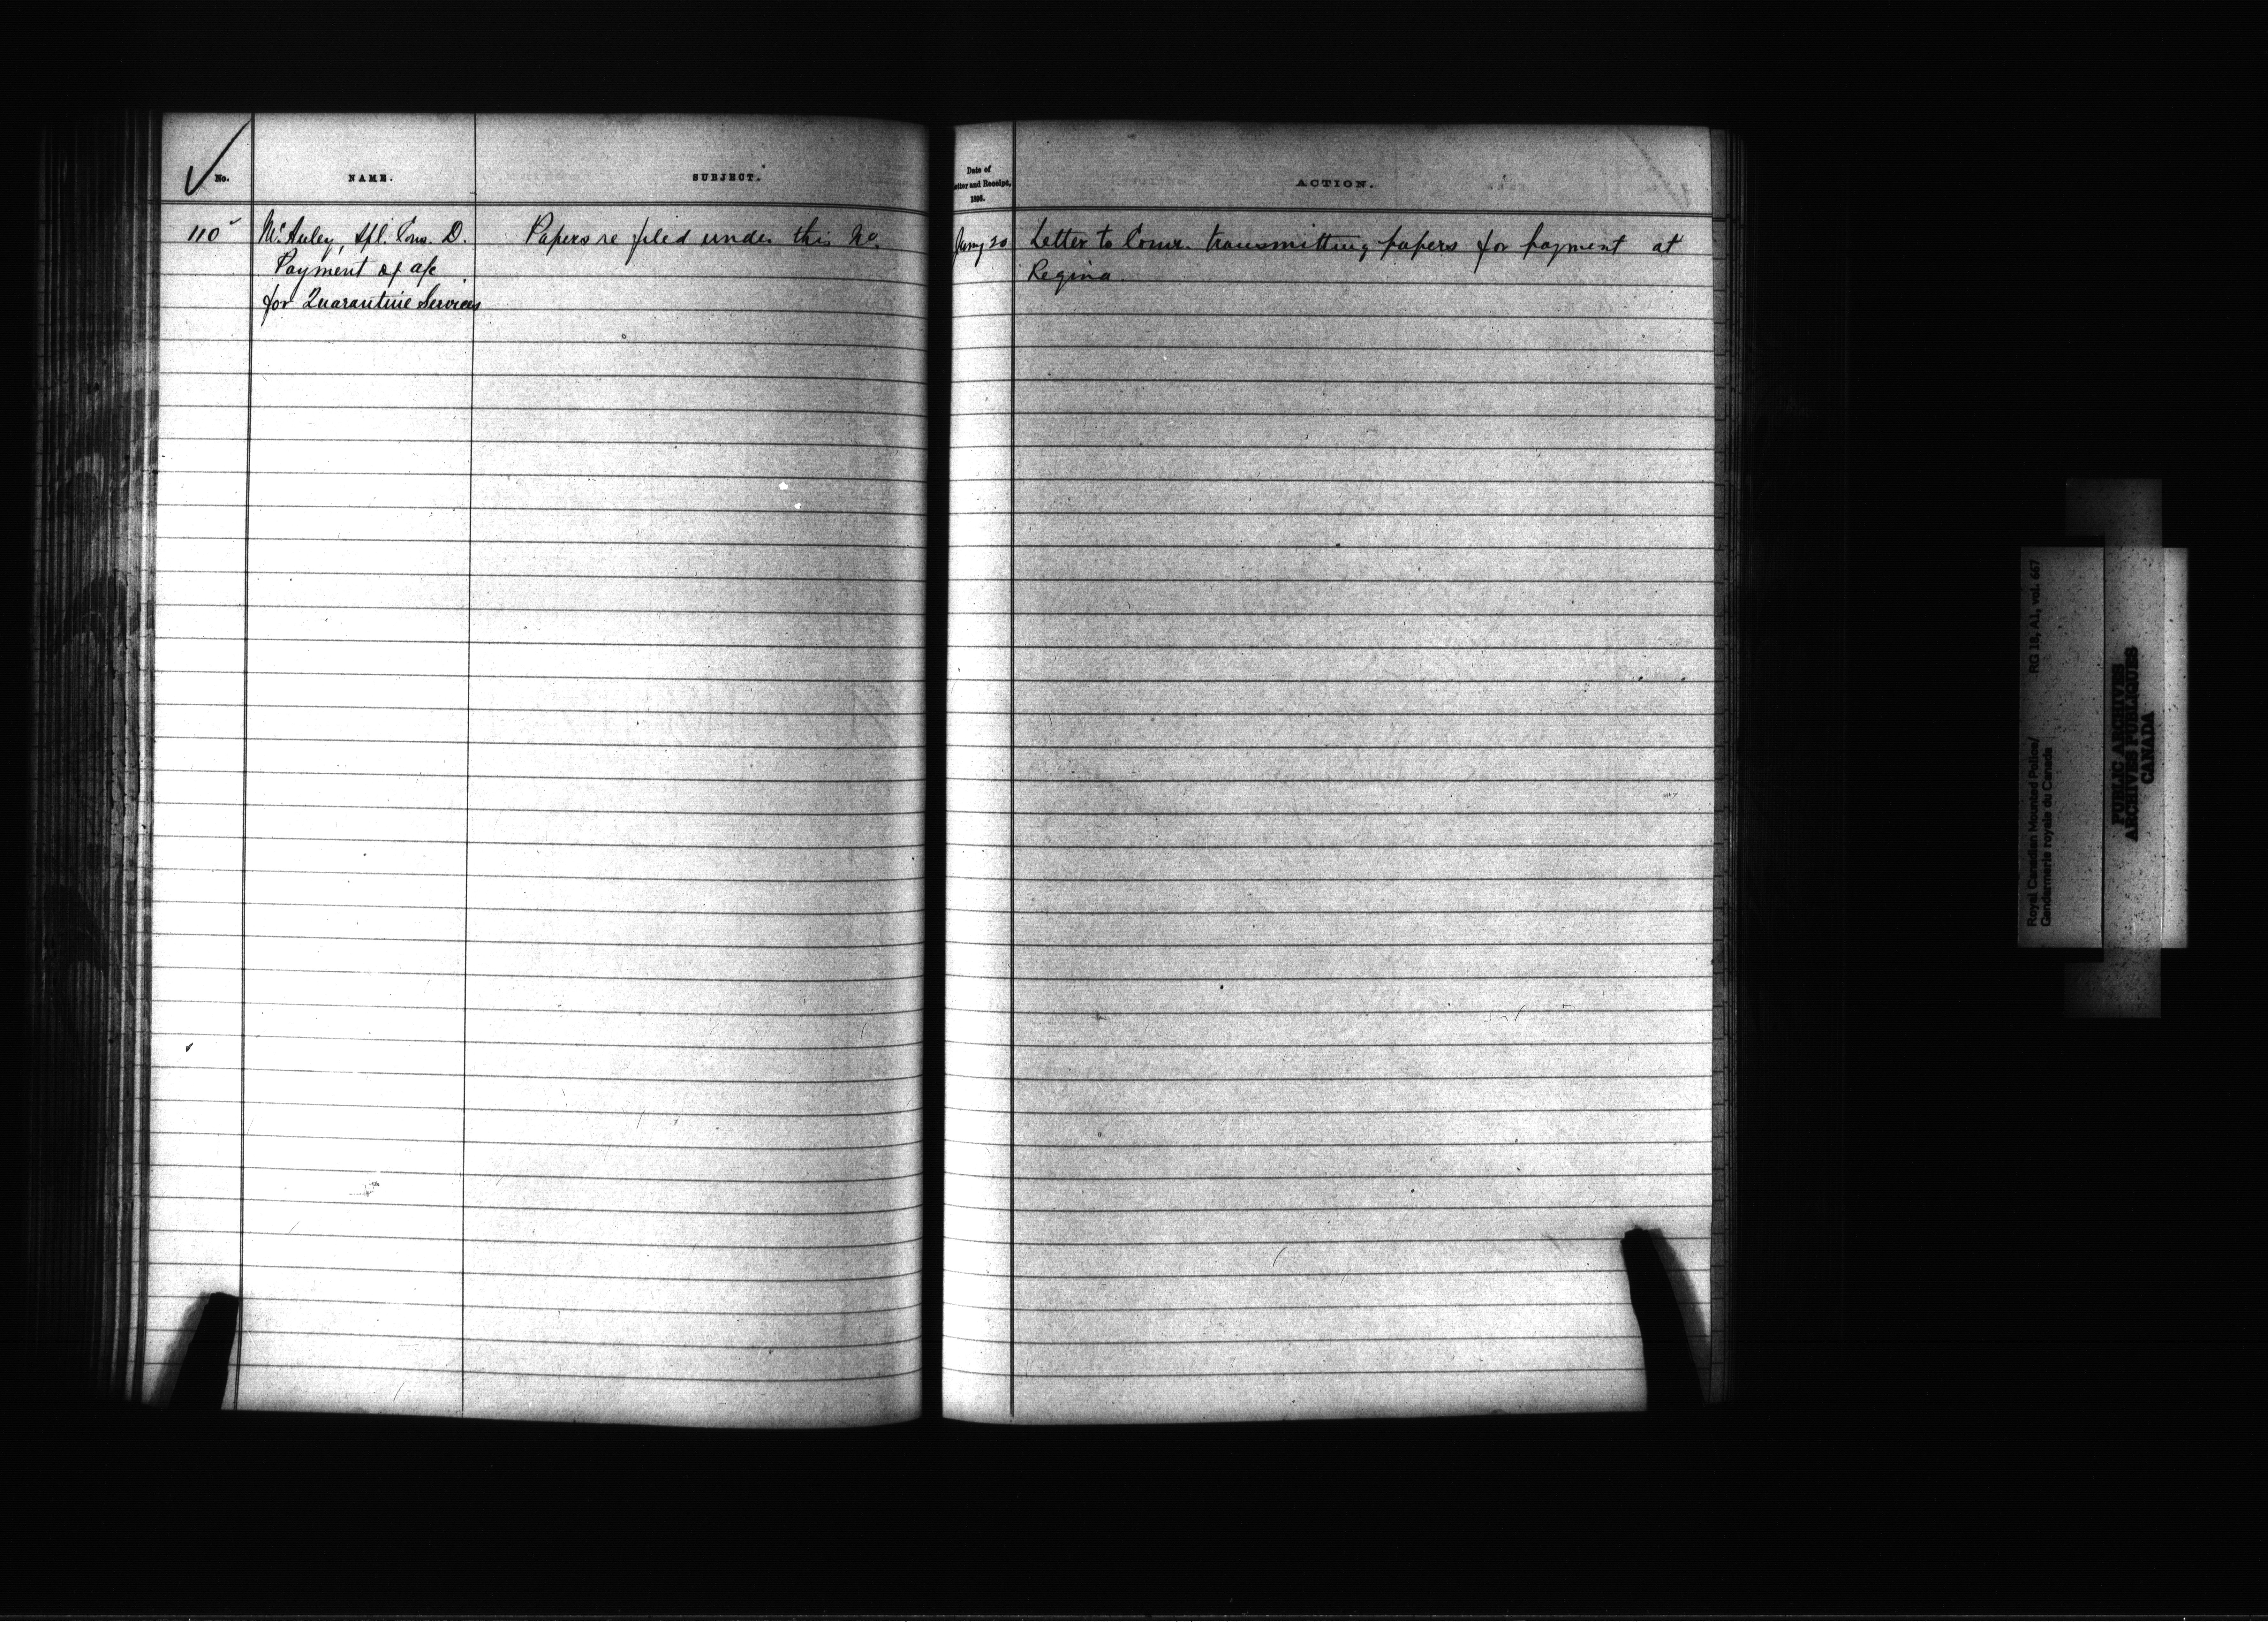 No. NAME. SUBJECT.
110 McAuley, Spl. Cons. D. Papers re filed under this No.
Payment of a/c
for Quarantine Services
Date of
Letter and Receipt,
ACTION.
Jany 20 Letter to Comr. transmitting papers for payment at
Regina
Royal Canadian Mounted Police/ RG 18, A1, vol. 667
Gendarmerie royale du Canada
PUBLIC ARCHIVES
ARCHIVES PUBLIQUES
CANADA